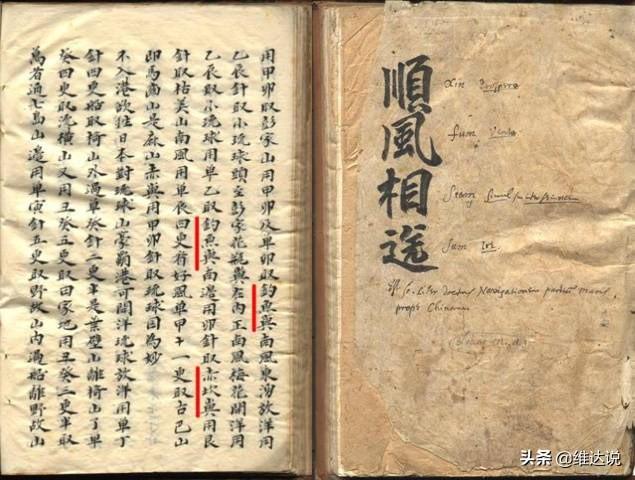 用甲卯取彭家山用甲卯及單卯取釣魚嶼南風東湧放洋用
乙辰針取小琉球頭至彭家花瓶嶼在內正南風梅花開洋用
乙辰取小琉球用單乙取釣魚嶼南邊用卯針取赤坎嶼用艮
針取枯美山南風用單辰四更看好風單甲十一更取古巴山
即馬齒山是麻山赤嶼用甲卯針取琉球國為妙
不入港欲往日本對琉球山豪霸港可開洋琉球放洋用單丁
針四更船取椅山外過單癸針二更半是葉壁山離椅山了單
癸四更取流橫山又用丑癸五更取田家地用丑癸三更半取
萬者通七島山邊用單寅針五更取野故山內過船離野故山
順風相送
Xin
fum
Siang
Sum
Liber Doctus Navigationem partium maris
prope Chinam
头条 @维达说